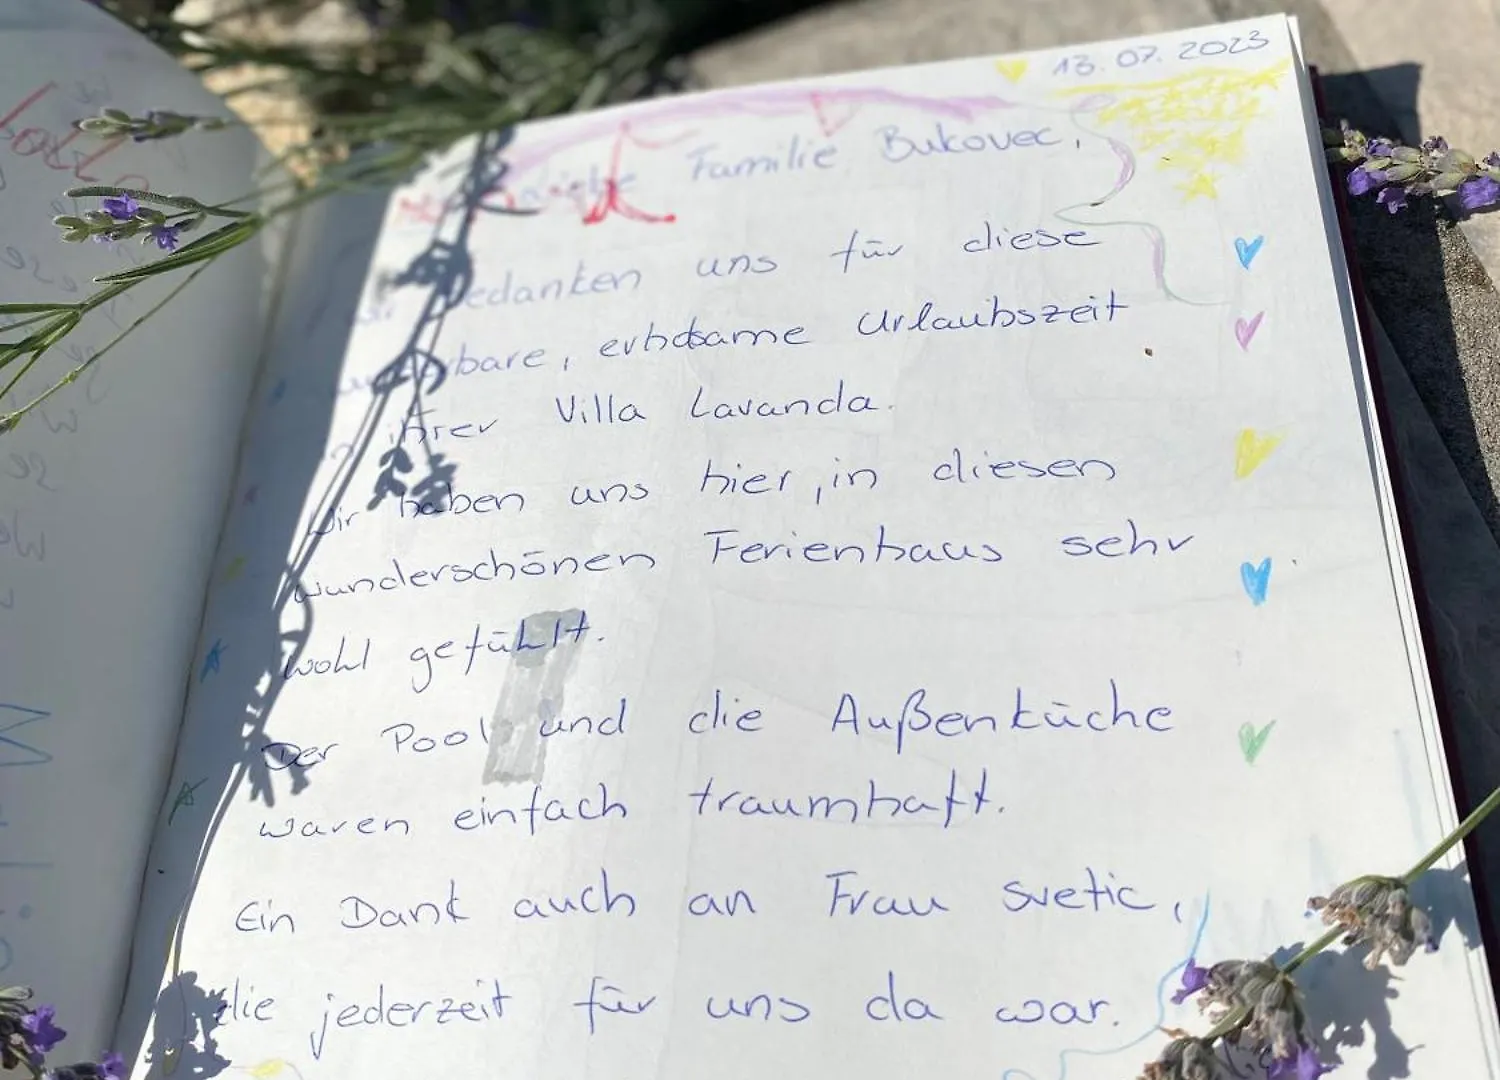 13.07.2023
Familie Bukovec,
bedanken uns für diese
erholsame Urlaubszeit
ihrer Villa Lavanda.
Wir haben uns hier, in diesen
wunderschönen Ferienhaus sehr
wohl gefühlt.
Der Pool und die Außenküche
waren einfach traumhaft.
Ein Dank auch an Frau Svetic,
die jederzeit für uns da war.